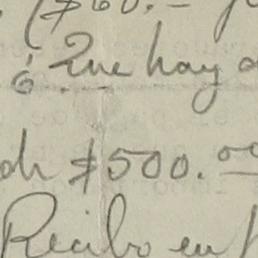 ($60.—
6. Que hay
de $500.00
Recibo en